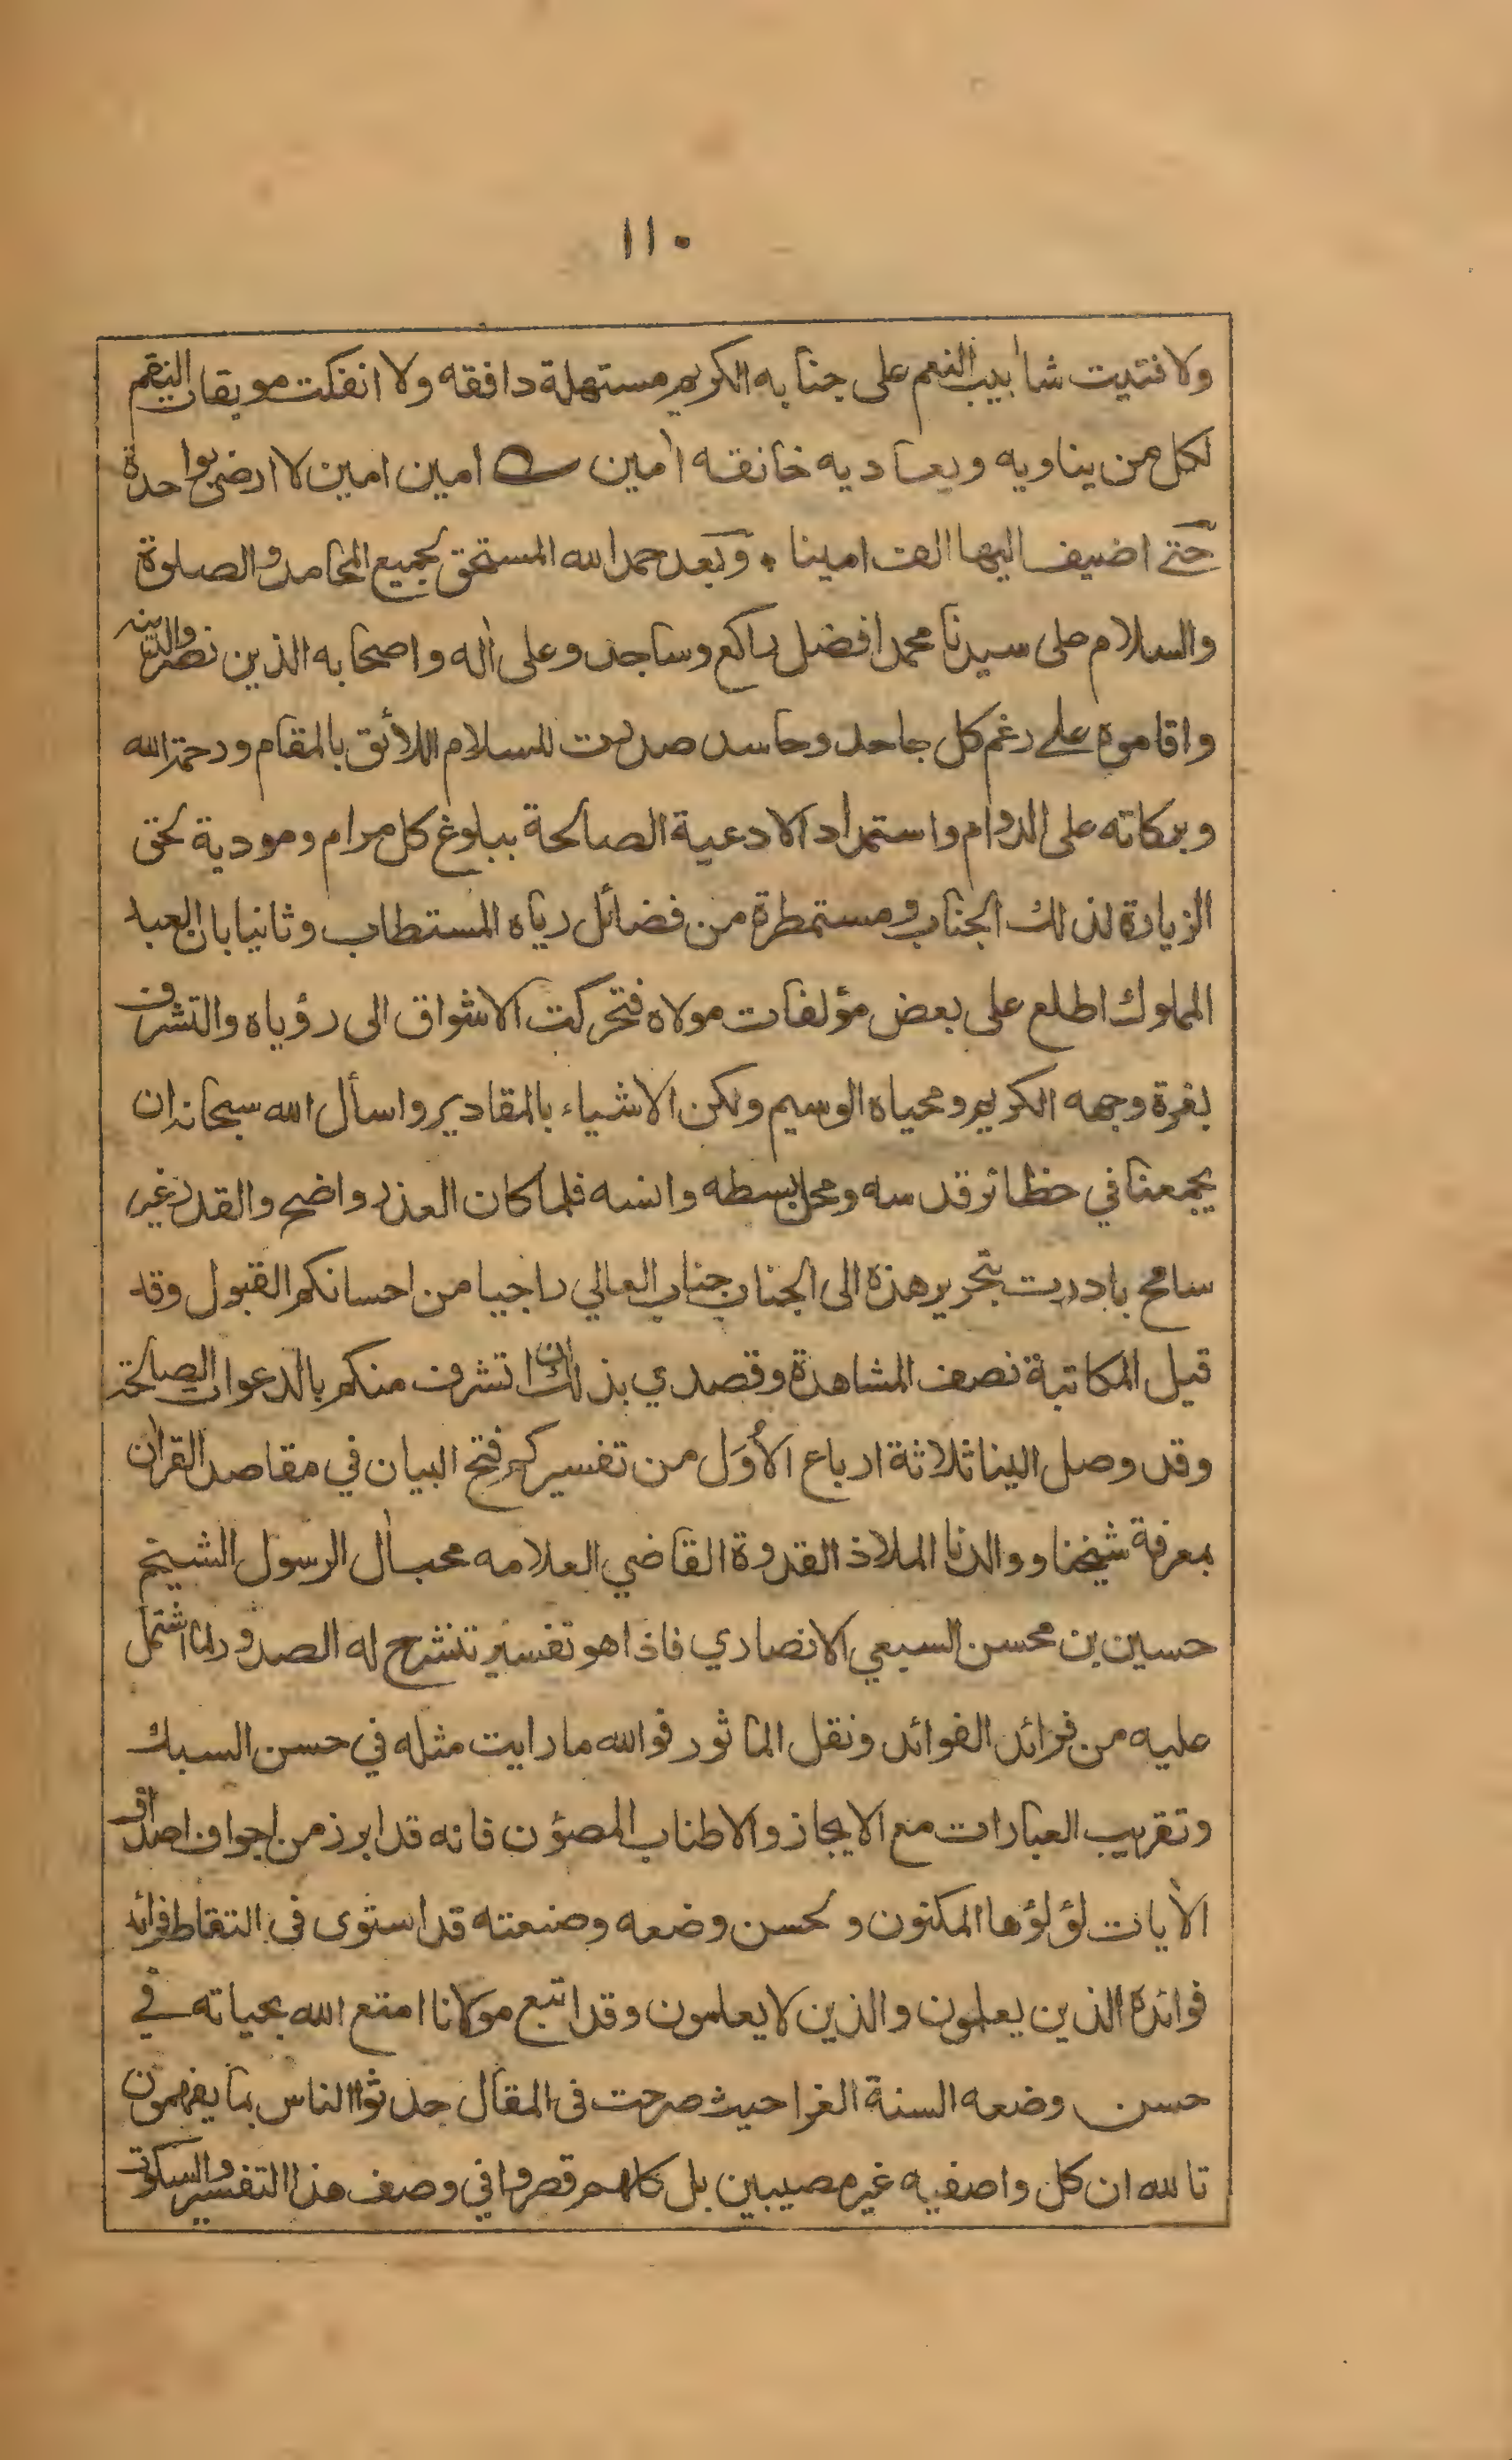 ١١٠
ولا فتئت شآبيب النعم على جنابه الكريم مستهلة دافقه ولا انفكت موبقات النقم
لكل من يناويه ويعاديه خانقه اٰمين امين امين لا ارضى بواحدة
حتے اضيف اليها الف امينا ٠ وبعد حمد الله المستحق لجميع المحامد والصلوة
والسلام على سيدنا محمد افضل راكع وساجد وعلى اٰله واصحابه الذين نصروا الدين
واقاموه علے رغم كل جاحد وحاسد صدرت للسلام اللائق بالمقام ورحمة الله
وبركاته على الدوام واستمداد الادعية الصالحة ببلوغ كل مرام ومودية لحق
الزيارة لذلك الجناب ومستمطرة من فضائل رياه المستطاب وثانيا بان العبد
المملوك اطلع على بعض مؤلفات مولاه فتحركت الاشواق الى رؤياه والتشرف
بغرة وجهه الكريم ومحياه الوسيم ولكن الاشياء بالمقادير واسأل الله سبحانه ان
يجمعنا في حظائر قدسه ومحل بسطه وانسه فلما كان العذر واضح والقدر غير
سامح بادرت بتحرير هذه الى الجناب جناب العالي راجيا من احسانكم القبول وقد
قيل المكاتبة نصف المشاهدة وقصدي بذلك ان اتشرف منكم بالدعوات الصالحة
وقد وصل الينا ثلاثة ارباع الأُوَل من تفسيركم فتح البيان في مقاصد القراٰن
بمعرفة شيخنا ووالدنا الملاذ القدوة القاضي العلامه محب اٰل الرسول الشيخ
حسين بن محسن السبعي الانصاري فاذا هو تفسير تنشرح له الصدور لما اشتمل
عليه من فرائد الفوائد ونقل الماثور فوالله ما رايت مثله في حسن السبك
وتقريب العبارات مع الايجاز والاطناب المصؤن فانه قد ابرز من اجواف اصداف
الاٰيات لؤلؤها المكنون وبحسن وضعه وصنعته قد استوى في التقاط فرائد
فوائده الذين يعلمون والذين لا يعلمون وقد اتبع مولانا امتع الله بحياته في
حسن وضعه السنة الغرا حيث صرحت في المقال حدثوا الناس بما يفهمون
تالله ان كل واصفيه غير مصيبين بل كلهم قصروا في وصف هذا التفسير والسكوت